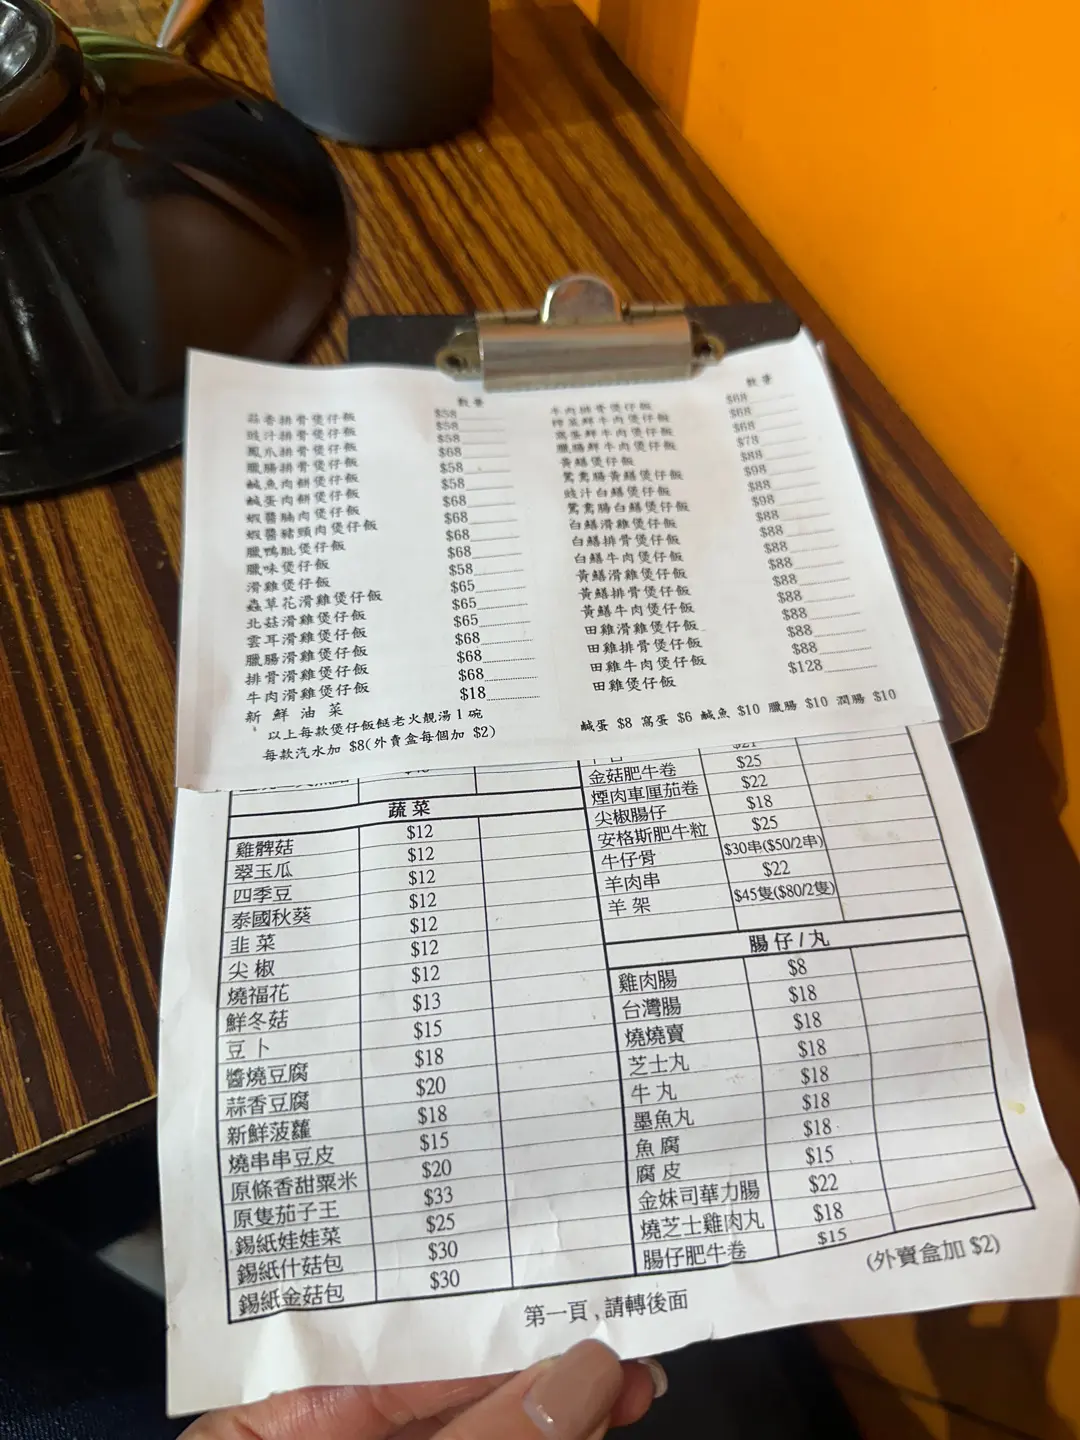 數量
蒜香排骨煲仔飯 $58
豉汁排骨煲仔飯 $58
鳳爪排骨煲仔飯 $58
臘腸排骨煲仔飯 $68
鹹魚肉餅煲仔飯 $58
鹹蛋肉餅煲仔飯 $58
蝦醬腩肉煲仔飯 $68
蝦醬豬頸肉煲仔飯 $68
臘鴨髀煲仔飯 $68
臘味煲仔飯 $68
滑雞煲仔飯 $58
蟲草花滑雞煲仔飯 $65
北菇滑雞煲仔飯 $65
雲耳滑雞煲仔飯 $65
臘腸滑雞煲仔飯 $68
排骨滑雞煲仔飯 $68
牛肉滑雞煲仔飯 $68
新鮮油菜 $18
以上每款煲仔飯餸老火靚湯1碗
每款汽水加 $8(外賣盒每個加 $2)
數量
牛肉排骨煲仔飯 $68
榨菜鮮牛肉煲仔飯 $68
窩蛋鮮牛肉煲仔飯 $68
臘腸鮮牛肉煲仔飯 $78
黃鱔煲仔飯 $88
鴛鴦腸黃鱔煲仔飯 $98
豉汁白鱔煲仔飯 $88
鴛鴦腸白鱔煲仔飯 $98
白鱔滑雞煲仔飯 $88
白鱔排骨煲仔飯 $88
白鱔牛肉煲仔飯 $88
黃鱔滑雞煲仔飯 $88
黃鱔排骨煲仔飯 $88
黃鱔牛肉煲仔飯 $88
田雞滑雞煲仔飯 $88
田雞排骨煲仔飯 $88
田雞牛肉煲仔飯 $88
田雞煲仔飯 $128
鹹蛋 $8 窩蛋 $6 鹹魚 $10 臘腸 $10 潤腸 $10
蔬菜
雞髀菇 $12
翠玉瓜 $12
四季豆 $12
泰國秋葵 $12
韭菜 $12
尖椒 $12
燒福花 $12
鮮冬菇 $13
豆卜 $15
醬燒豆腐 $18
蒜香豆腐 $20
新鮮菠蘿 $18
燒串串豆皮 $15
原條香甜粟米 $20
原隻茄子王 $33
錫紙娃娃菜 $25
錫紙什菇包 $30
錫紙金菇包 $30
$21
金菇肥牛卷 $25
煙肉車厘茄卷 $22
尖椒腸仔 $18
安格斯肥牛粒 $25
牛仔骨 $30串($50/2串)
羊肉串 $22
羊架 $45隻($80/2隻)
腸仔/丸
雞肉腸 $8
台灣腸 $18
燒燒賣 $18
芝士丸 $18
牛丸 $18
墨魚丸 $18
魚腐 $18
腐皮 $15
金妹司華力腸 $22
燒芝士雞肉丸 $18
腸仔肥牛卷 $15
(外賣盒加 $2)
第一頁,請轉後面